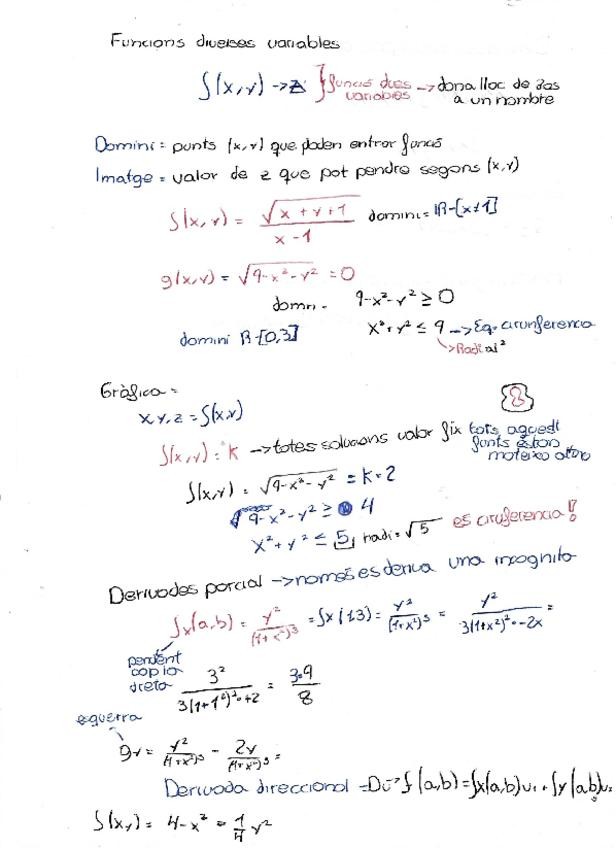 Funcions diverses variables
f(x,y) → z } funció dues variables → dona lloc de 2as a un nombre
Domini = punts (x,y) que poden entrar funció
Imatge = valor de z que pot pendre segons (x,y)
f(x,y) = √(x+y+1) / (x-1) domini = IR-[x≠1]
g(x,y) = √(9-x²-y²) = 0
domini 9-x²-y² ≥ 0
x²+y² ≤ 9 → Eq. circunferencia
→ Radi al²
domini IR-[0,3]
Gràfica =
x y, z = f(x,y)
f(x,y) = k → totes solucions valor fix tots aquest
punts estan
mateixa
f(x,y) = √(9-x²-y²) = k = 2
√ 9-x²-y² ≥ 4
x²+y² ≤ 5, radi = √5 es ciruferencia!
Derivades parcial → nomes es deriva una incognita
fx(a,b) = y²/(1+x²)³ = fx(1,3) = y²/(1+x²)³ = y²/3(1+x²)²·-2x =
pendent
dreta
3²/3(1+1²)²·+2 = 3·9/8
esquerra
gy = y²/(1+x²)³ - 2y/(1+x²)³ =
Derivada direccional = Du→ f(a,b) = fx(a,b)u₁ + fy(a,b)u₂
f(x,y) = 4-x² = 1/4 y²